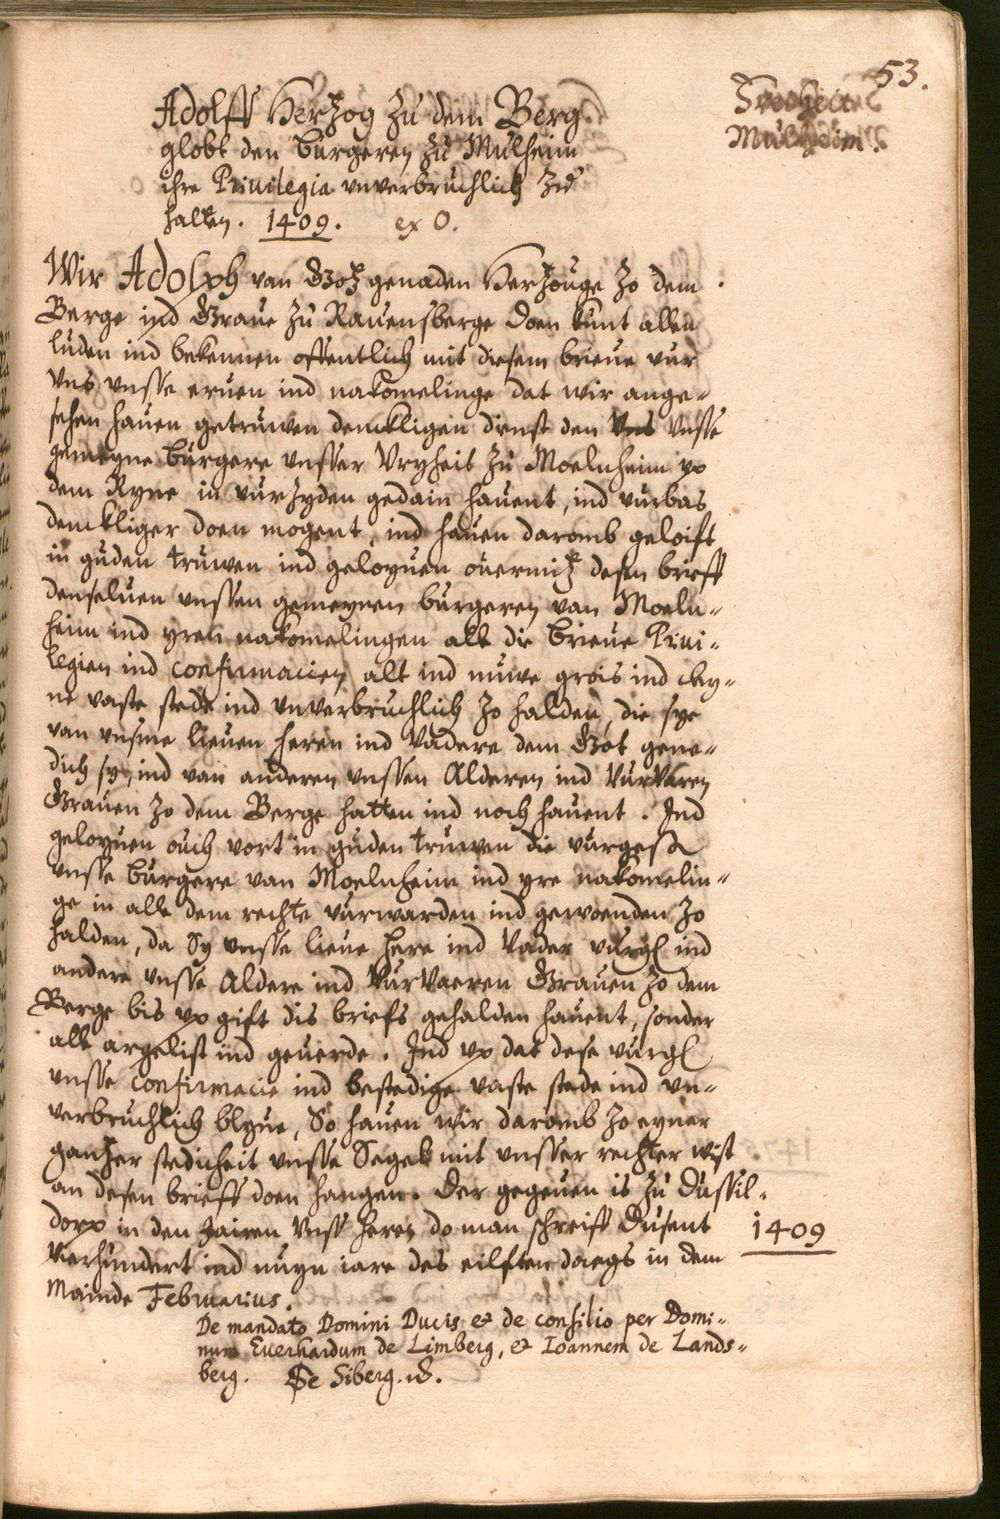 53.
Freiheit
Mülheim.
Adolff Hertzog zu dem Berg
globt den Burgeren zu Mülheim
ihre Privilegia unverbruchlich zu
halten. 1409. ex O.
Wir Adolph van Gotz genaden Hertzouge zo dem
Berge ind Graue zu Rauensberge doen kunt allen
luden ind bekennen offentlich mit diesem brieue vur
Vns vnsse eruen ind nakomelinge dat wir ange-
sehen hauen getruwen denckligen dienst den Vns Vnsse
gemeyne Burgere vnsser Vryheit zu Moelnheim vp
dem Ryne in vurzyden gedain hauent, ind vurbas
denckliger doen mogent, ind hauen daromb geloift
in guden truwen ind geloyuen ouermitz desen brieff
denseluen vnssen gemeynen burgeren van Moeln-
heim ind yren nakomelingen alle die brieue Priui-
legien ind confirmacien alt ind nuwe grois ind cley-
ne vaste stede ind vnverbruchlich zo halden, die sye
van vnsme lieuen heren ind Vadere dem Got gene-
dich sy, ind van anderen vnssen Alderen ind Vurvaren
Grauen zo dem Berge hatten ind noch hauent. Ind
geloyuen ouch vort in guden truwen die vurgess
vnsse burgere van Moelnheim ind yre nakomelin-
ge in alle dem rechte vurwarden ind gewoenden zo
halden, da Sy vnsse lieue here ind Vader vurgl ind
andere vnsse Aldere ind Vurvaeren Grauen zo dem
Berge bis vp gift dis briefs gehalden hauent, sonder
alle argelist ind geuerde. Ind vp dat dese vurgl
vnsse confirmacie ind bestedige vaste stede ind vn-
verbruchlich blyue, So hauen wir daromb zo eyner
gantzer stedicheit vnsse Segele mit vnsser rechter wist
an desen brieff doen hangen. Der gegeuen is zu Dussil-
dorp in den jairen Vnss heren do man schreiff Dusent
Vierhundert ind nuyn iare des eilfften daegs in dem
Mainde Februarius.
1409
De mandato Domini Ducis et de consilio per Domi-
num Everhardum de Limberg, et Ioannem de Lands-
berg. De Siberg.